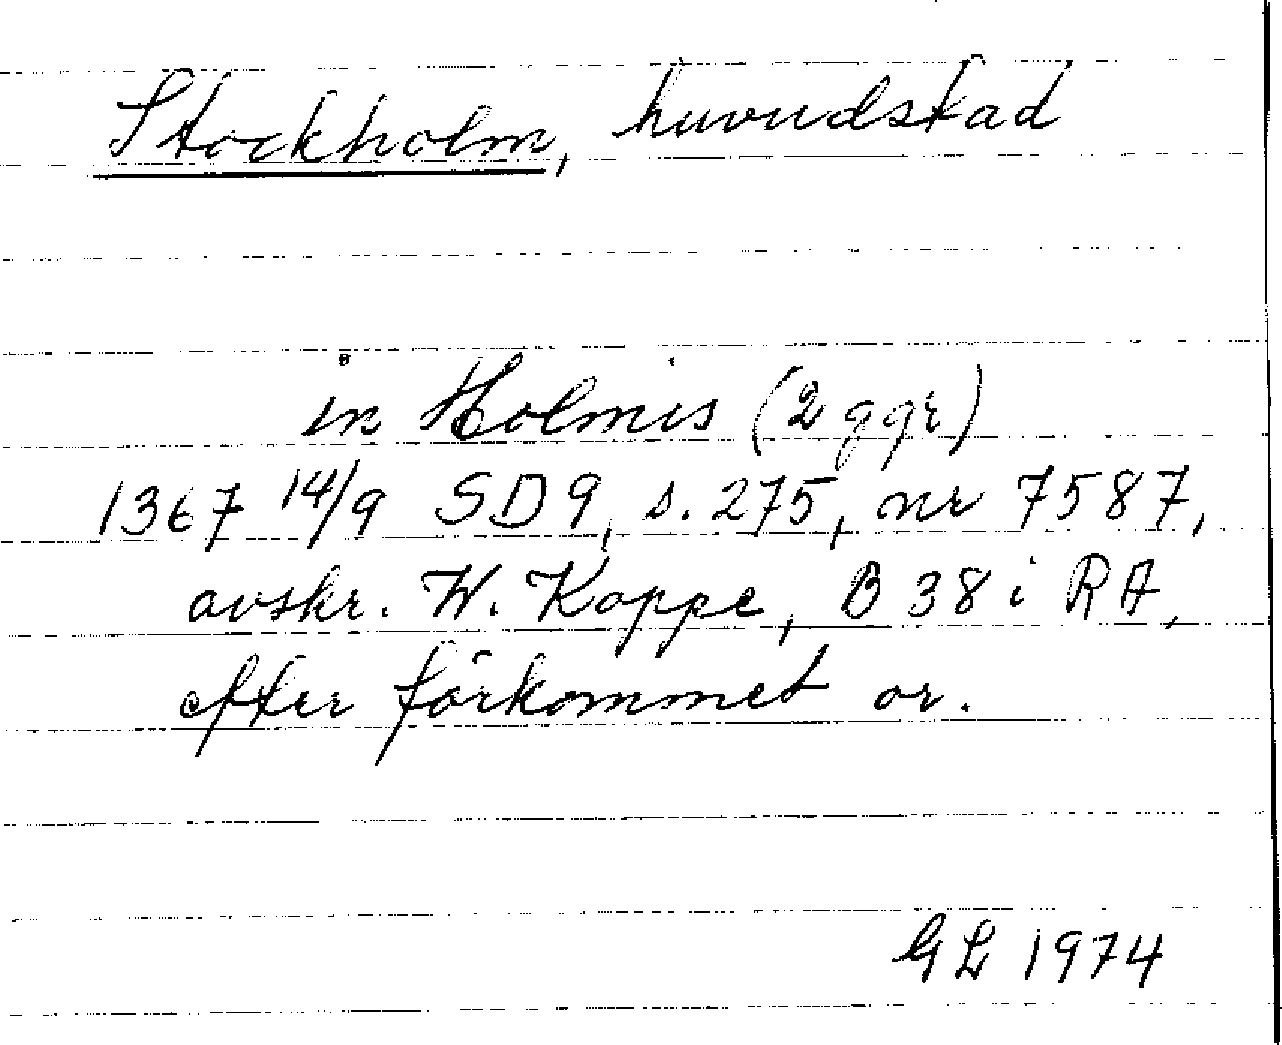 Stockholm, huvudstad
in Holmis (2 ggr)
1367 14/9 SD9, s. 275, nr 7587,
avskr. W. Koppe, B 38 i RA,
efter förkommet or.
GL 1974